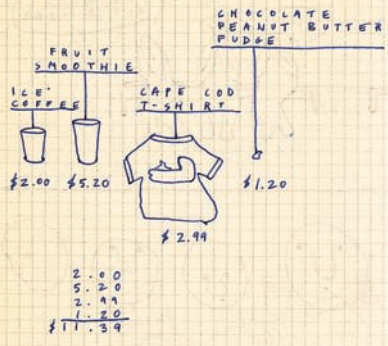 CHOCOLATE
PEANUT BUTTER
FUDGE
FRUIT
SMOOTHIE
ICE
COFFEE
CAPE COD
T-SHIRT
$2.00
$5.20
$1.20
$2.99
2.00
5.20
2.99
1.20
$11.39